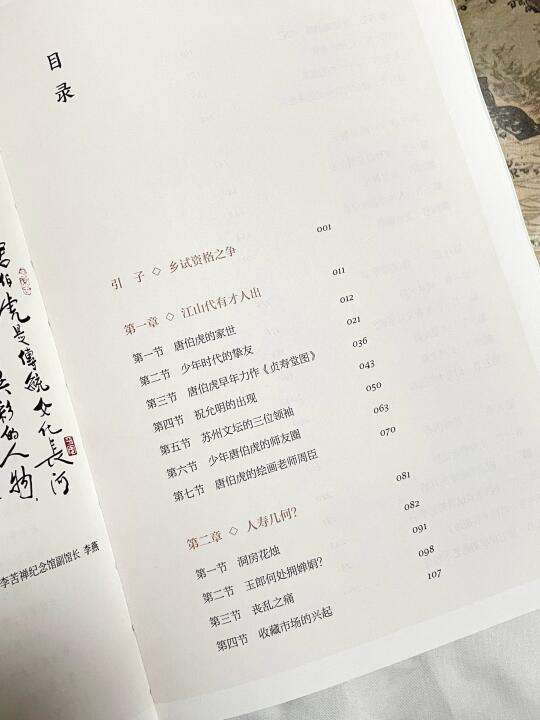 目录
引子 ◇ 乡试资格之争 001
第一章 ◇ 江山代有才人出 011
第一节 唐伯虎的家世 012
第二节 少年时代的挚友 021
第三节 唐伯虎早年力作《贞寿堂图》 036
第四节 祝允明的出现 043
第五节 苏州文坛的三位领袖 050
第六节 少年唐伯虎的师友圈 063
第七节 唐伯虎的绘画老师周臣 070
第二章 ◇ 人寿几何？ 081
第一节 洞房花烛 082
第二节 玉郎何处拥蝉娟？ 091
第三节 丧乱之痛 098
第四节 收藏市场的兴起 107
伯虎是傳統文化長河
彩的人物
李苦禅纪念馆副馆长 李燕